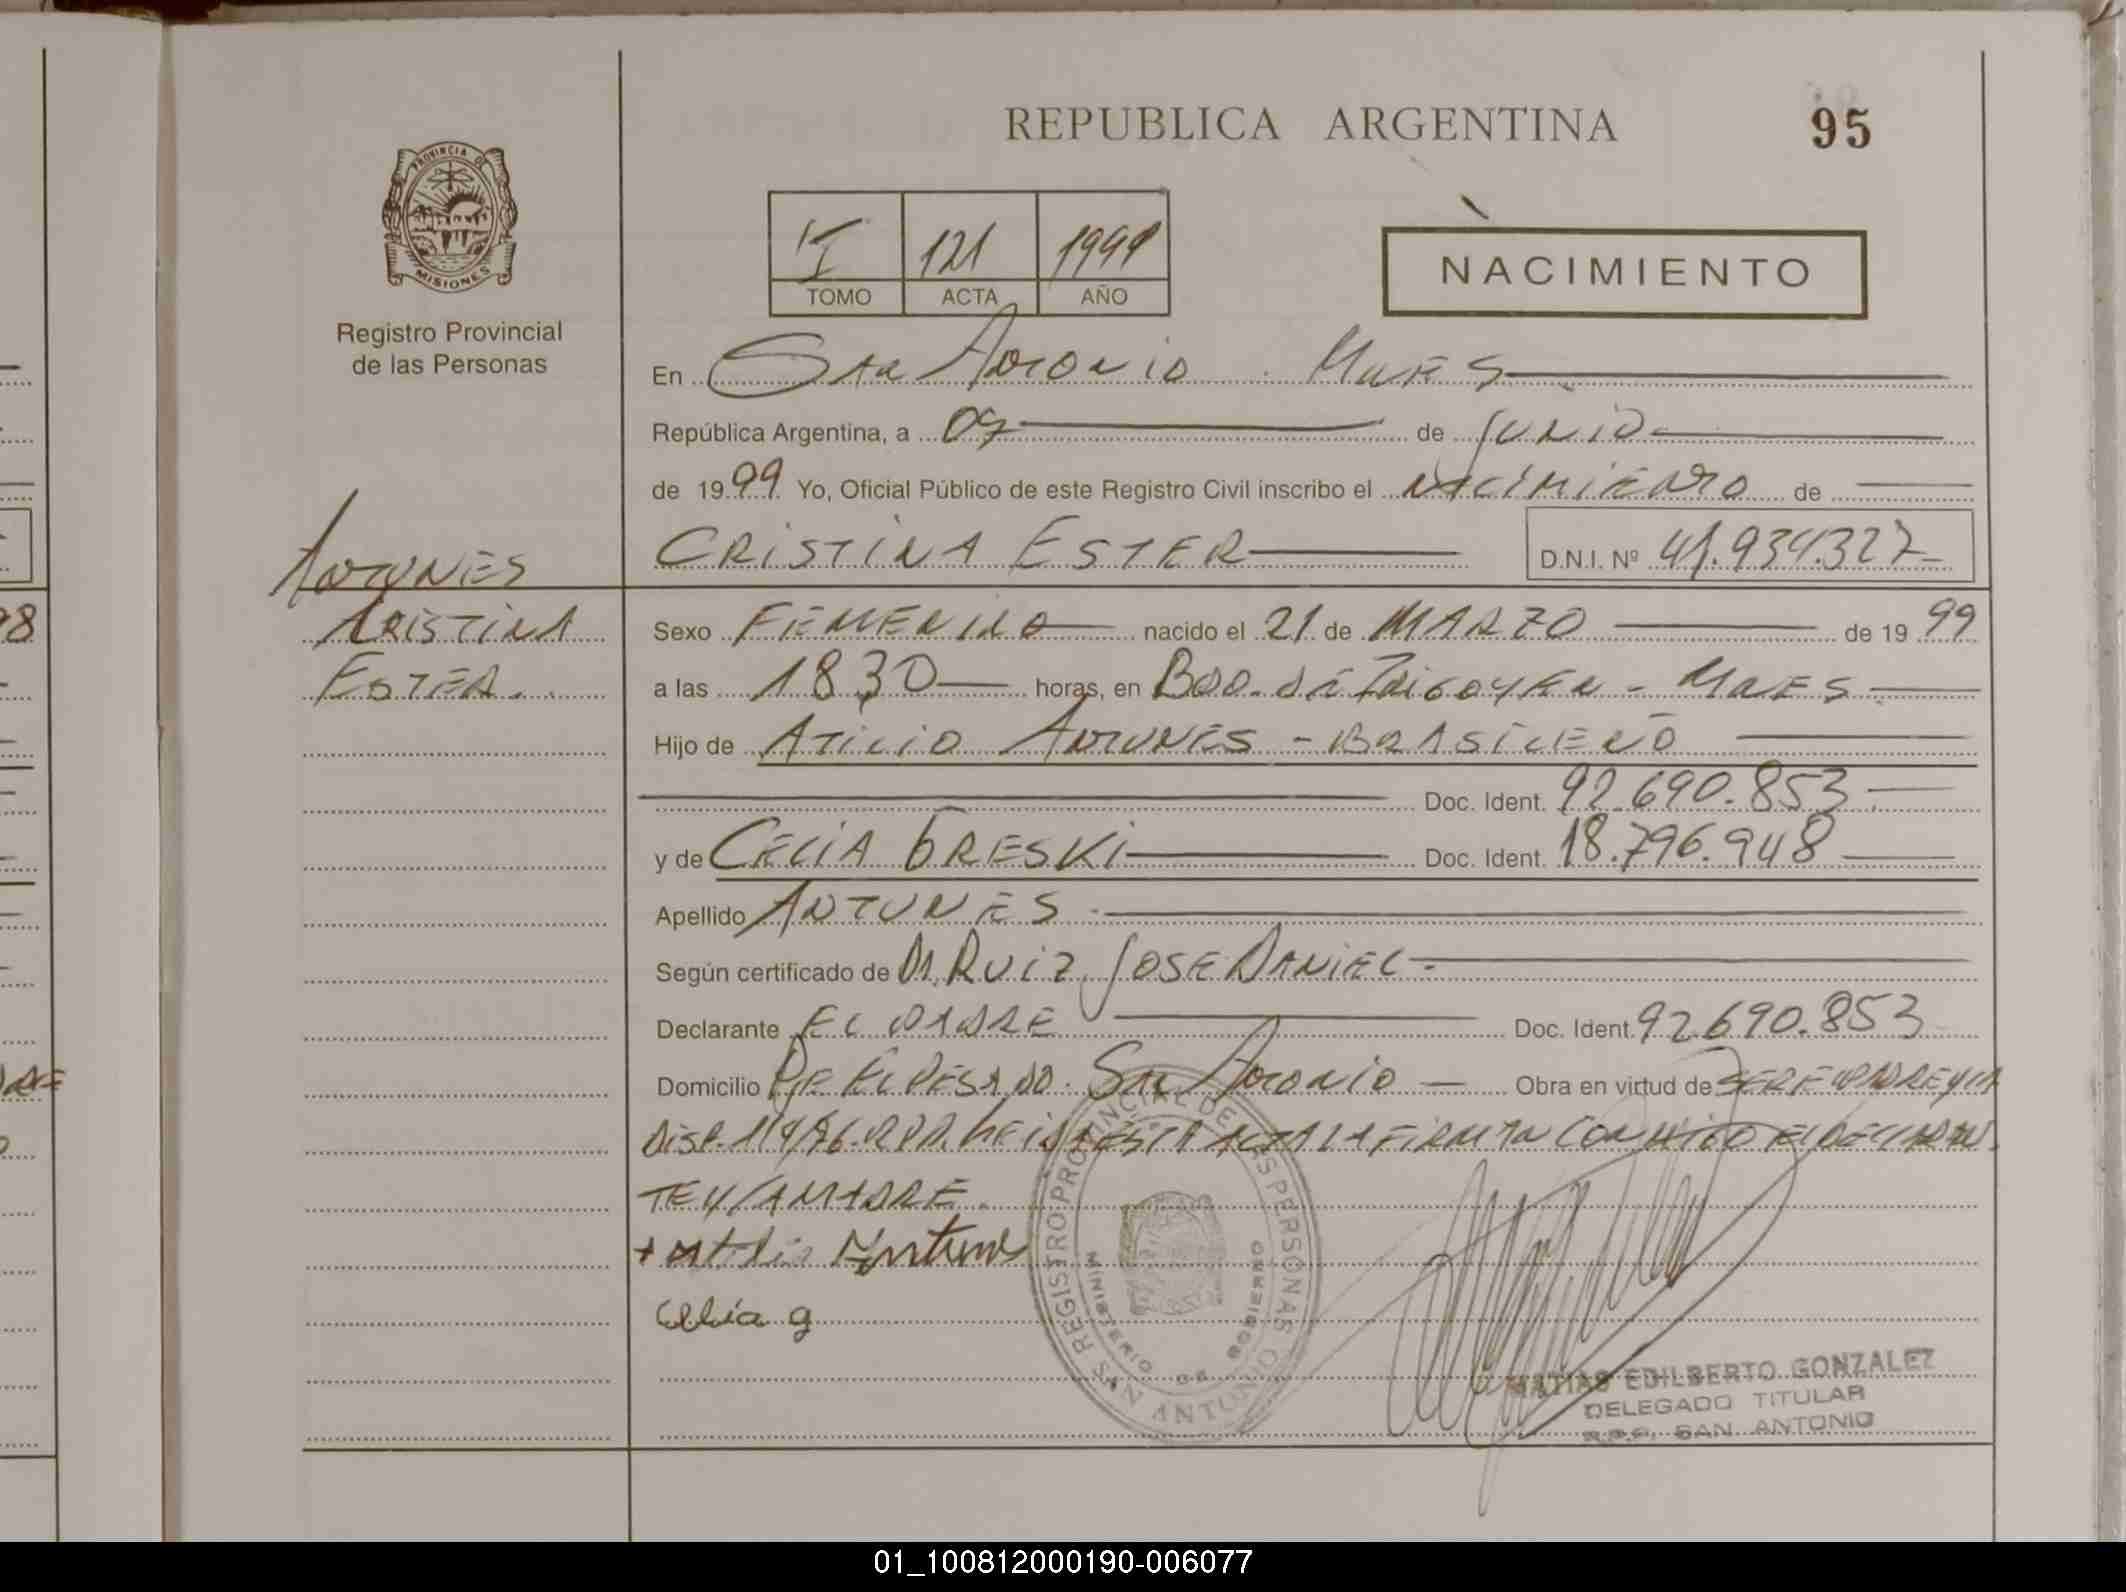 REPUBLICA ARGENTINA
95
PROVINCIA DE
MISIONES
Registro Provincial
de las Personas
I 121 1999
TOMO ACTA AÑO
NACIMIENTO
En San Antonio Mnes
República Argentina, a 09 de Junio
de 1999 Yo, Oficial Público de este Registro Civil inscribo el Nacimiento de
CRISTINA ESTER D.N.I. Nº 41.934.327
ANTUNES
CRISTINA
ESTER.
Sexo FEMENINO nacido el 21 de MARZO de 1999
a las 18,30 horas, en Bdo. de Irigoyen - Mnes
Hijo de Atilio Antunes - BRASILEÑO
Doc. Ident. 92.690.853
y de CELIA GRESKI Doc. Ident. 18.796.948
Apellido ANTUNES
Según certificado de Dr. RUIZ JOSE DANIEL
Declarante EL PADRE Doc. Ident. 92.690.853
Domicilio Pje. EL PESADO. San Antonio Obra en virtud de
Leida ESTA ACTA LA FIRMAN CONMIGO EL DECLARAN
TE Y LA MADRE.
+ Atilio Antunes
Celia g
REGISTRO PROVINCIAL DE LAS PERSONAS
SAN ANTONIO
MINISTERIO DE GOBIERNO
MATIAS EDILBERTO GONZALEZ
DELEGADO TITULAR
R.P.P. SAN ANTONIO
98
01_100812000190-006077